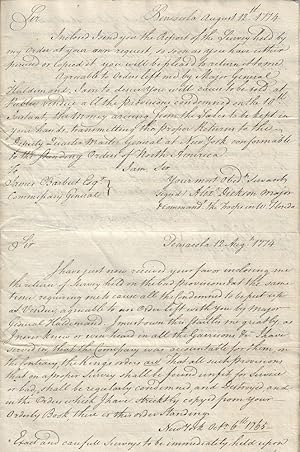 Pensacola August 12th 1774
Sir
Inclosed I send you the Report of the Survey held by
my Order at your own request, so soon as you have either
perused or Copied it you will be pleased to return it to me.
Agreeable to Orders left me by Major General
Haldimand, I am to desire you will cause to be sold at
Publick Vendue all the Provisions condemned on the 10th
Instant, the Money arising from the Sales to be kept in
your hands, transmitting the proper Returns to the
Deputy Quarter Master General at New York conformable
to the Standing Orders of North America
To I am Sir
James Barbut Esqr. Your most Obedt. Servant
Commissary General Signd Alexr. Dickson Major
Command. the troops in W. Florida
Sir Pensacola 12 Augt. 1774
I have just now received your favor inclosing me
the return of Survey held on the bad Provisions & at the same
time requiring me to cause all the Condemned to be put up
at Vendue agreeable to an Order left with you by Major
General Haldimand. I must own this startles me greatly as
I never knew or even heard in all the Garrisons I have
Served in that the Company was accountable for them, on
the contrary the Kings orders are that all such provisions
that on a proper Survey shall be found unfit for Service
or bad, shall be regularly condemned and Destroyed and
in the Order which I have Strictly copyd from your
Orderly Book there is this order Standing
New York Octr. 6th 1765
Exact and carefull Surveys to be immediately held upon